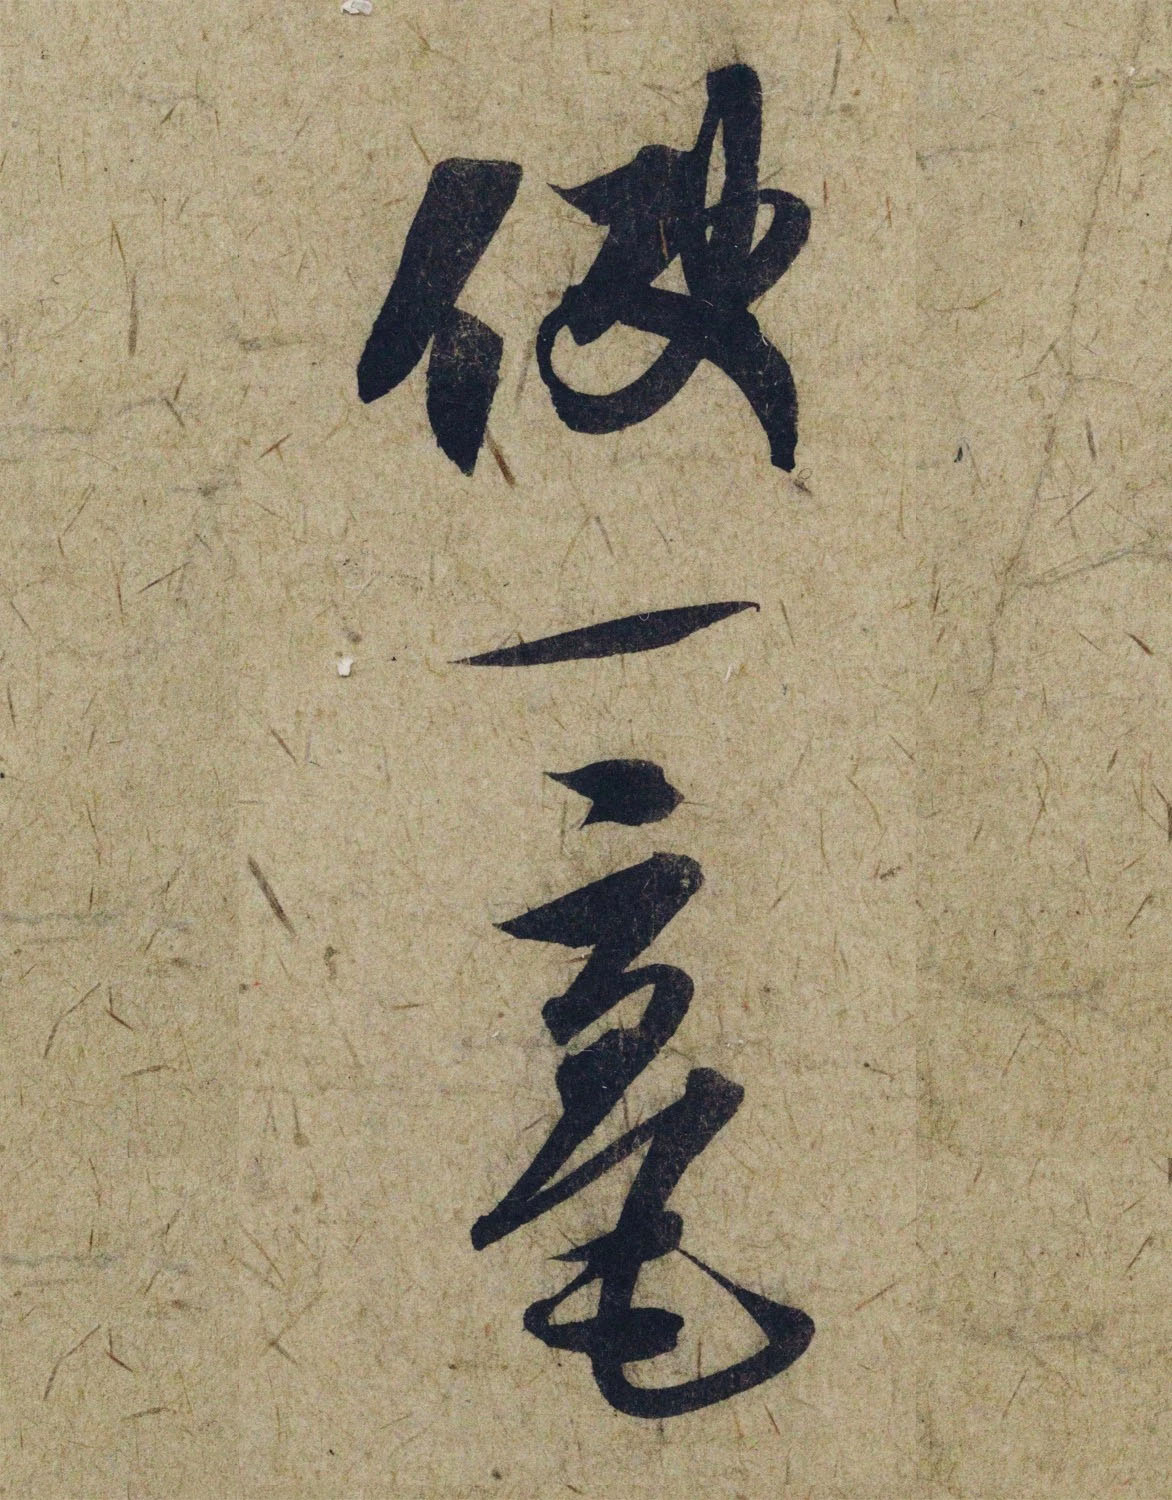 使一毫